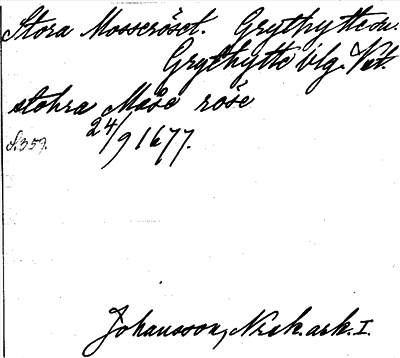 Stora Mosseröset. Grythyttedn.
Grythytte blg. Vstm.
stohra Måse röse
24/9 1677.
S. 359.
Johansson, N. Rsk. ark. I.